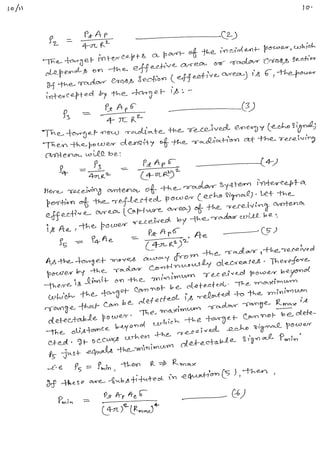 10/11
10.
P2 = Pt Ap / 4πR² (2)
The target intercepts a part of the incident power, which
depends on the effective area or radar cross section
If the radar cross section (effective area) is б, the power
intercepted by the target is :-
P3 = Pt Ap б / 4πR² (3)
The target now radiate the received energy (echo signal)
Then the power density of the radiation at the receiving
antenna will be:
P4 = P3 / 4πR² = Pt Ap б / (4πR²)² (4)
Here receiving antenna of the radar system intercepts a
portion of the reflected power (echo signal). Let the
effective area (capture area) of the receiving antenna
is Ae, the power received by the radar will be:
P5 = P4 Ae = Pt Ap б / (4πR²)² . Ae (5)
As the target moves away from the radar, the received
power by the radar continuously decreases. Therefore
there is limit on the minimum received power beyond
which the target can not be detected. The maximum
range that can be detected is related to the minimum
detectable power. The, maximum radar range Rmax is
the distance beyond which the target can not be dete-
cted. It occurs when the received echo signal power
P5 just equals the minimum detectable signal Pmin.
i.e P5 = Pmin, then R ⇒ Rmax.
If these are substituted in equation (5), then,
Pmin = Pt Ap Ae б / (4π)² (Rmax)⁴ (6)